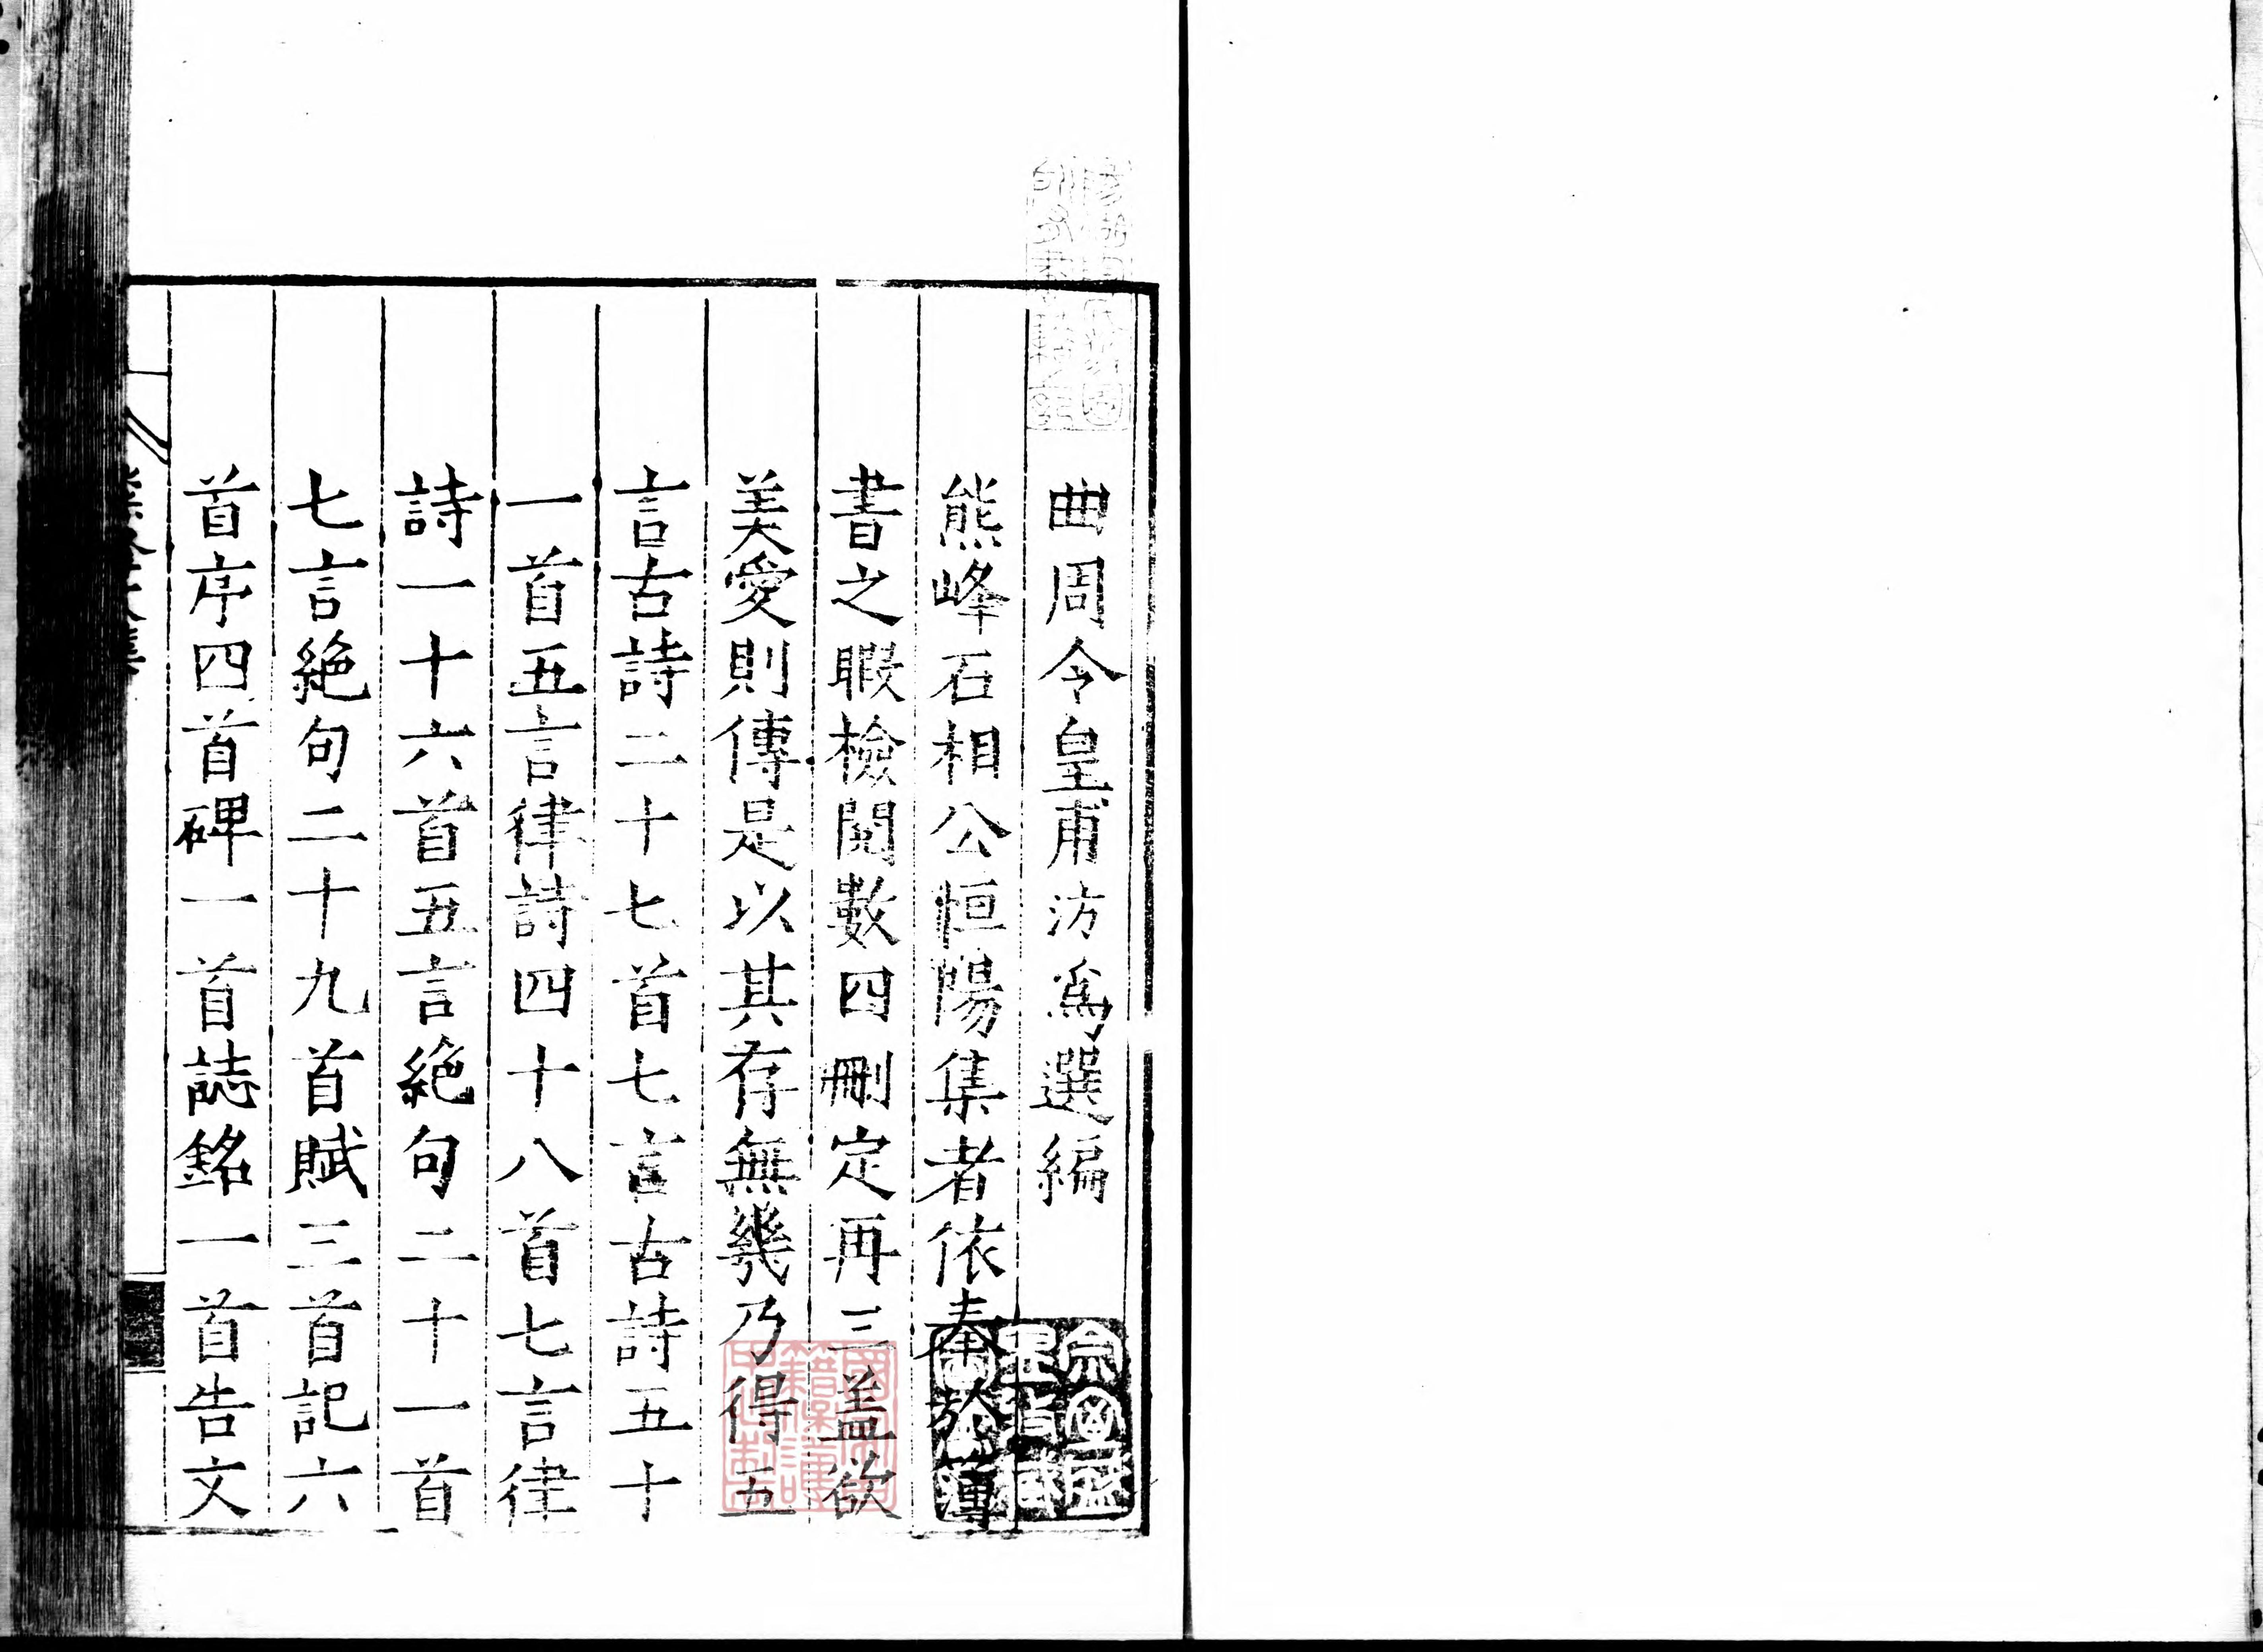 曲周令皇甫汸爲選編
熊峰石相公恒陽集者依奉於簿
書之暇檢閱數四刪定再三盖欲
美愛則傳是以其存無幾乃得五
言古詩二十七首七言古詩五十
一首五言律詩四十八首七言律
詩一十六首五言絶句二十一首
七言絶句二十九首賦三首記六
首序四首碑一首誌銘一首告文